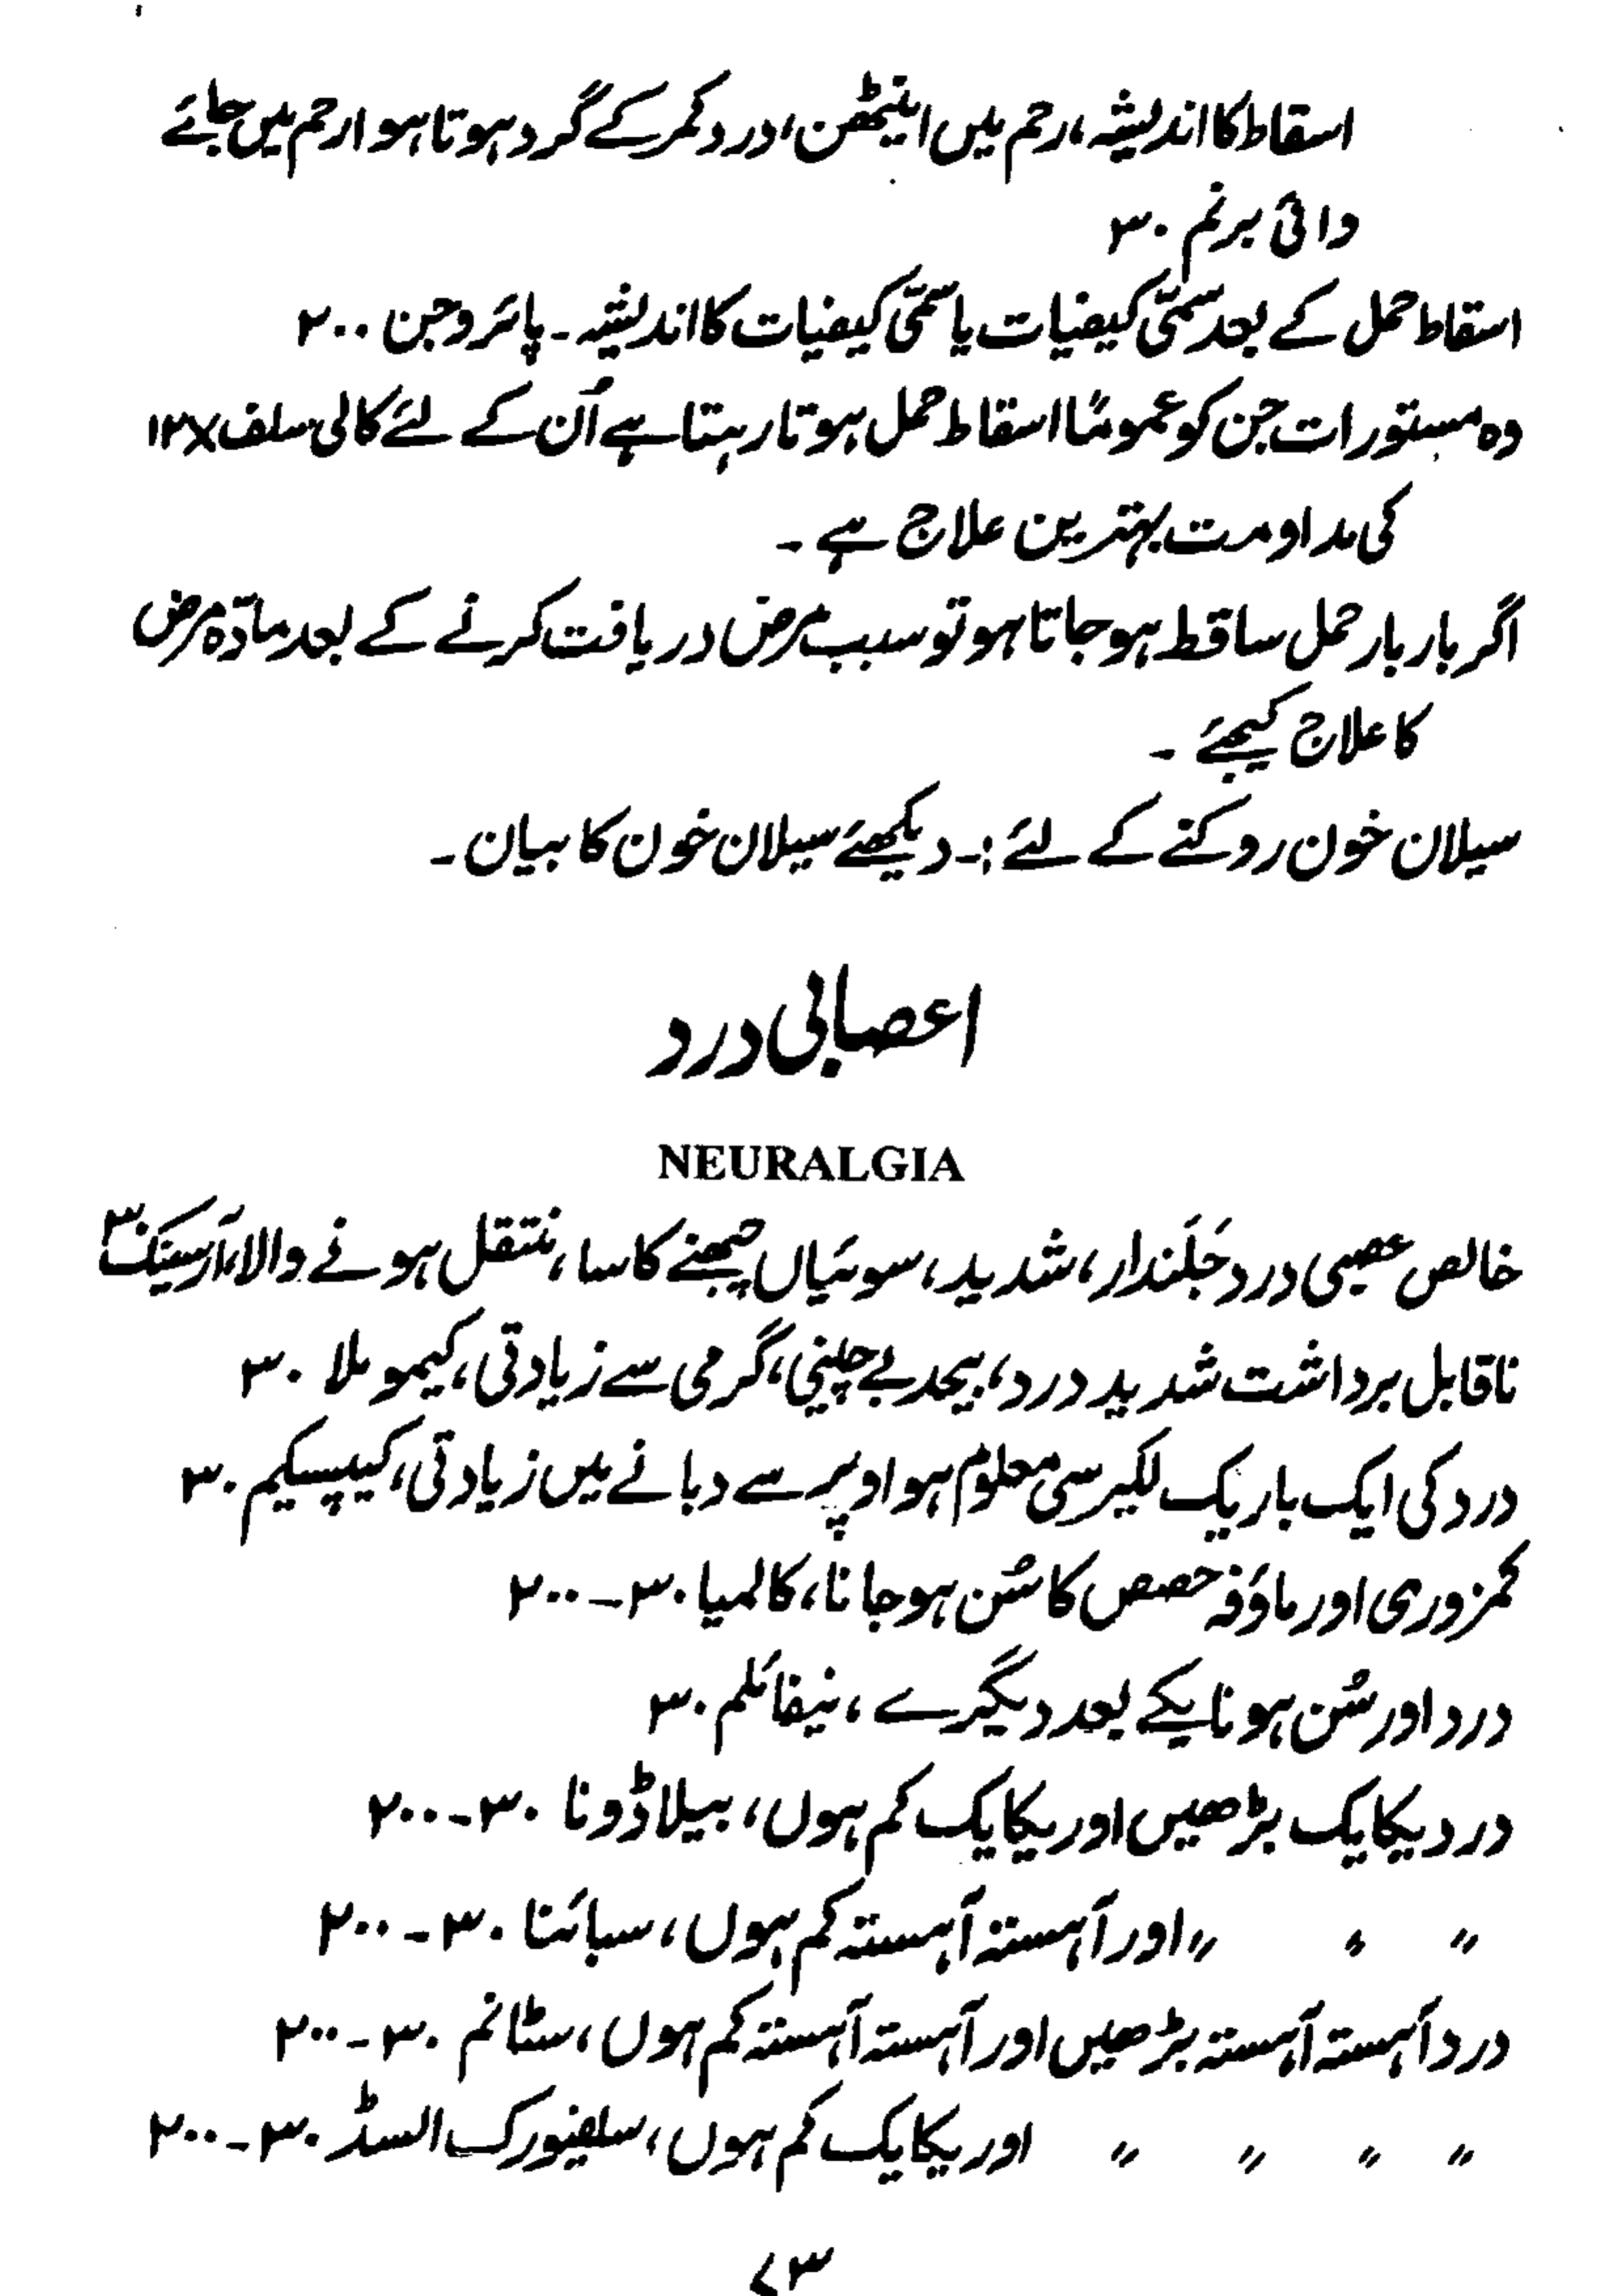 اسقاط کا اندیشہ، رحم میں اینٹھن، درد کمر کے گرد ہوتا ہوا رحم میں جائے
وائی برنم ۳۰
اسقاط حمل کے بعد سمّی کیفیات یا سمّی کیفیات کا اندیشہ ۔ پائروجن ۲۰۰
وہ مستورات جن کو عموماً اسقاط حمل ہوتا رہتا ہے اُن کے لئے کالی سلف ۱۲x
کی مداومت بہترین علاج ہے ۔
اگر بار بار حمل ساقط ہو جاتا ہو تو سبب مرض دریافت کرنے کے بعد مادّہ مرض
کا علاج کیجئے ۔
سیلان خون روکنے کے لئے :۔ دیکھئے سیلان خون کا بیان ۔
اعصابی درد
NEURALGIA
خالص عصبی درد جَلَندار، شدید، سوئیاں چبھنے کا سا، منتقل ہونے والا، آرسینک ۳۰
ناقابل برداشت شدید درد، بیحد بے چینی، گرمی سے زیادتی، کیمو ملا ۳۰
درد کی ایک باریک لکیر سی معلوم ہو اوپر سے دبانے میں زیادتی، کیپسیکم ۳۰
کمزوری اور ماؤفہ حصص کا سُن ہو جانا، کالمیا ۳۰ ۔ ۲۰۰
درد اور سُن ہونا یکے بعد دیگرے، نیفائلم ۳۰
درد یکایک بڑھیں اور یکایک کم ہوں، بیلا ڈونا ۳۰ ۔ ۲۰۰
〃 〃 〃 اور آہستہ آہستہ کم ہوں، سبائنا ۳۰ ۔ ۲۰۰
درد آہستہ آہستہ بڑھیں اور آہستہ آہستہ کم ہوں، سٹانم ۳۰ ۔ ۲۰۰
〃 〃 〃 〃 اور یکایک کم ہوں، سلفیورک السڈ ۳۰ ۔ ۲۰۰
۷۳